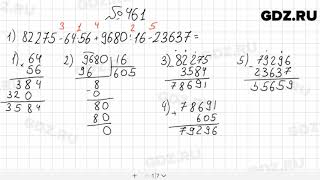 GDZ.RU
№461
3 1 4 2 5
1) 82275-64·56+9680:16-23637=
1) 64 2) 9680 | 16 3) 82275 5) 79296
56 96 605 3584 23637
384 -8 78691 55659
320 0
3584 80 4) 78691
80 605
0 79296
GDZ.RU